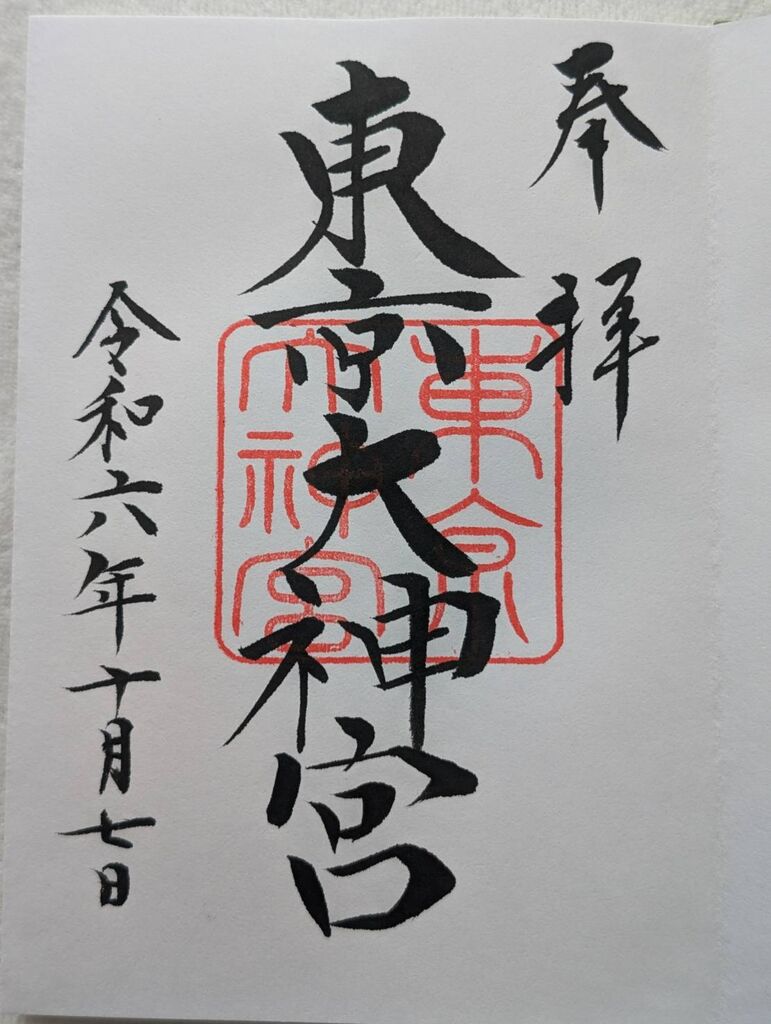 奉拝
東京大神宮
東京大神宮
令和六年十月七日